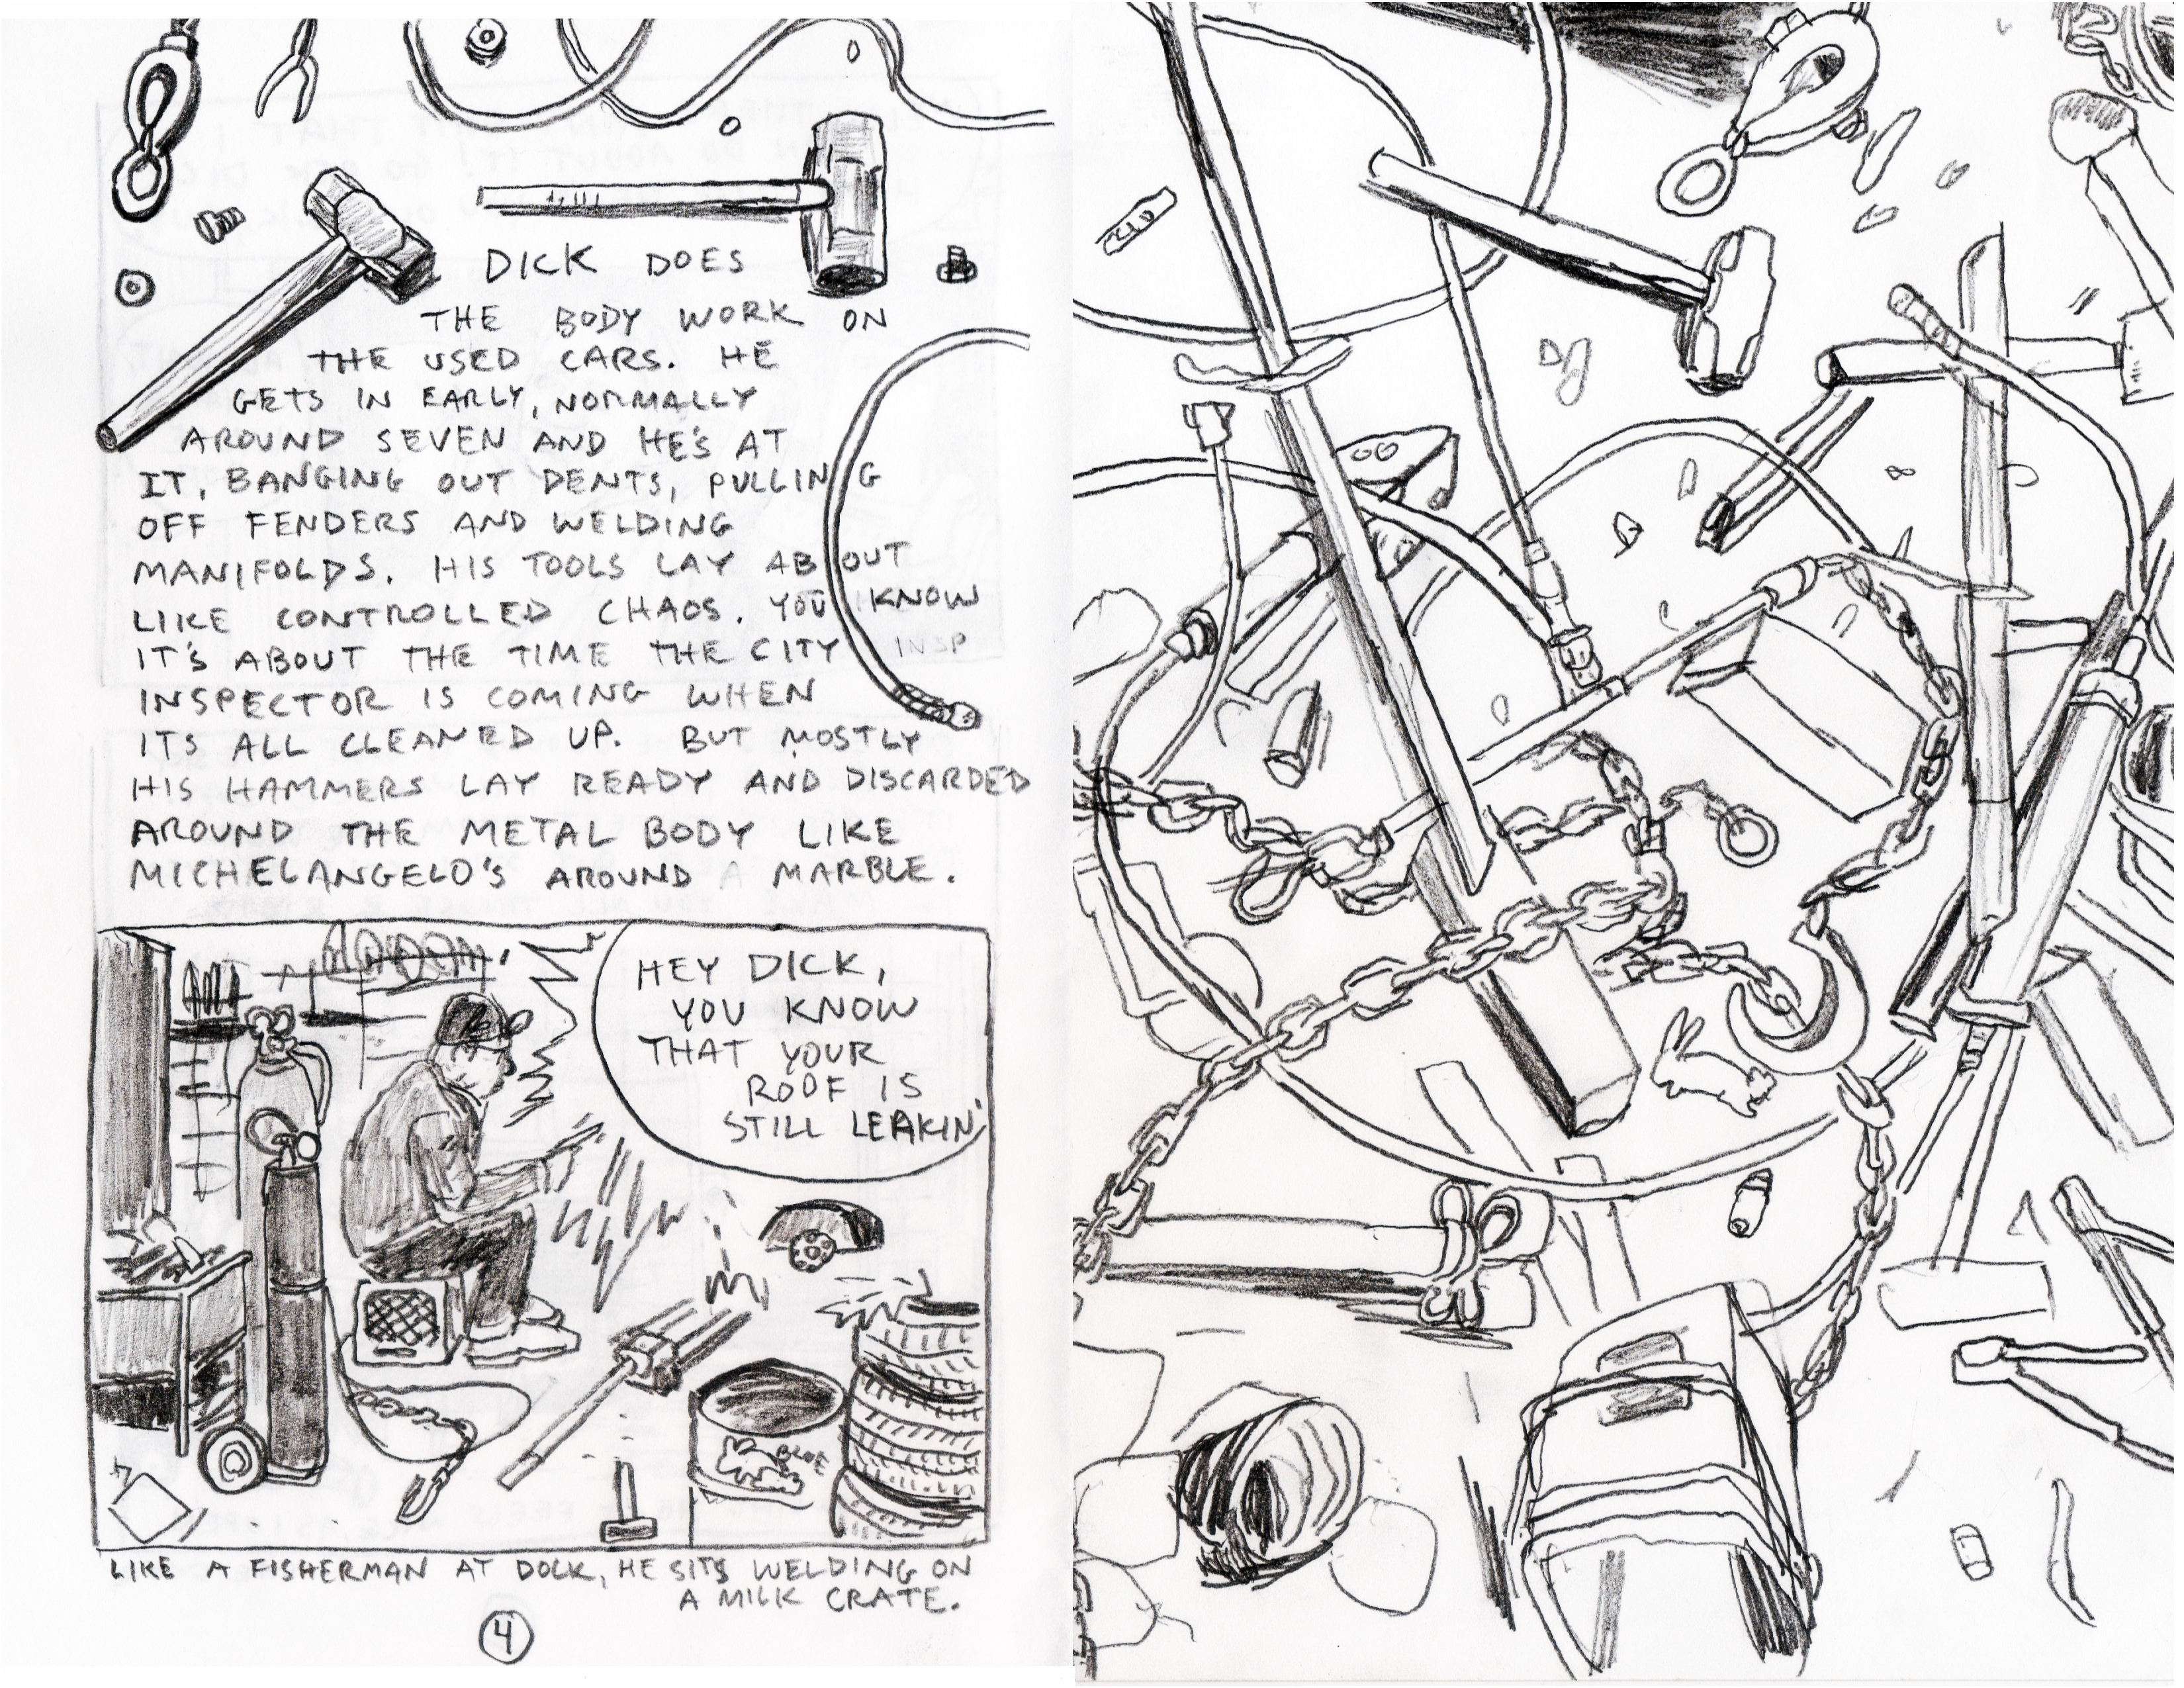 DICK DOES
THE BODY WORK ON
THE USED CARS. HE
GETS IN EARLY, NORMALLY
AROUND SEVEN AND HE'S AT
IT, BANGING OUT DENTS, PULLING
OFF FENDERS AND WELDING
MANIFOLDS. HIS TOOLS LAY ABOUT
LIKE CONTROLLED CHAOS. YOU KNOW
IT'S ABOUT THE TIME THE CITY INSP
INSPECTOR IS COMING WHEN
ITS ALL CLEANED UP. BUT MOSTLY
HIS HAMMERS LAY READY AND DISCARDED
AROUND THE METAL BODY LIKE
MICHELANGELO'S AROUND A MARBLE.
HEY DICK,
YOU KNOW
THAT YOUR
ROOF IS
STILL LEAKIN'
BLUE
LIKE A FISHERMAN AT DOCK, HE SITS WELDING ON
A MILK CRATE.
4